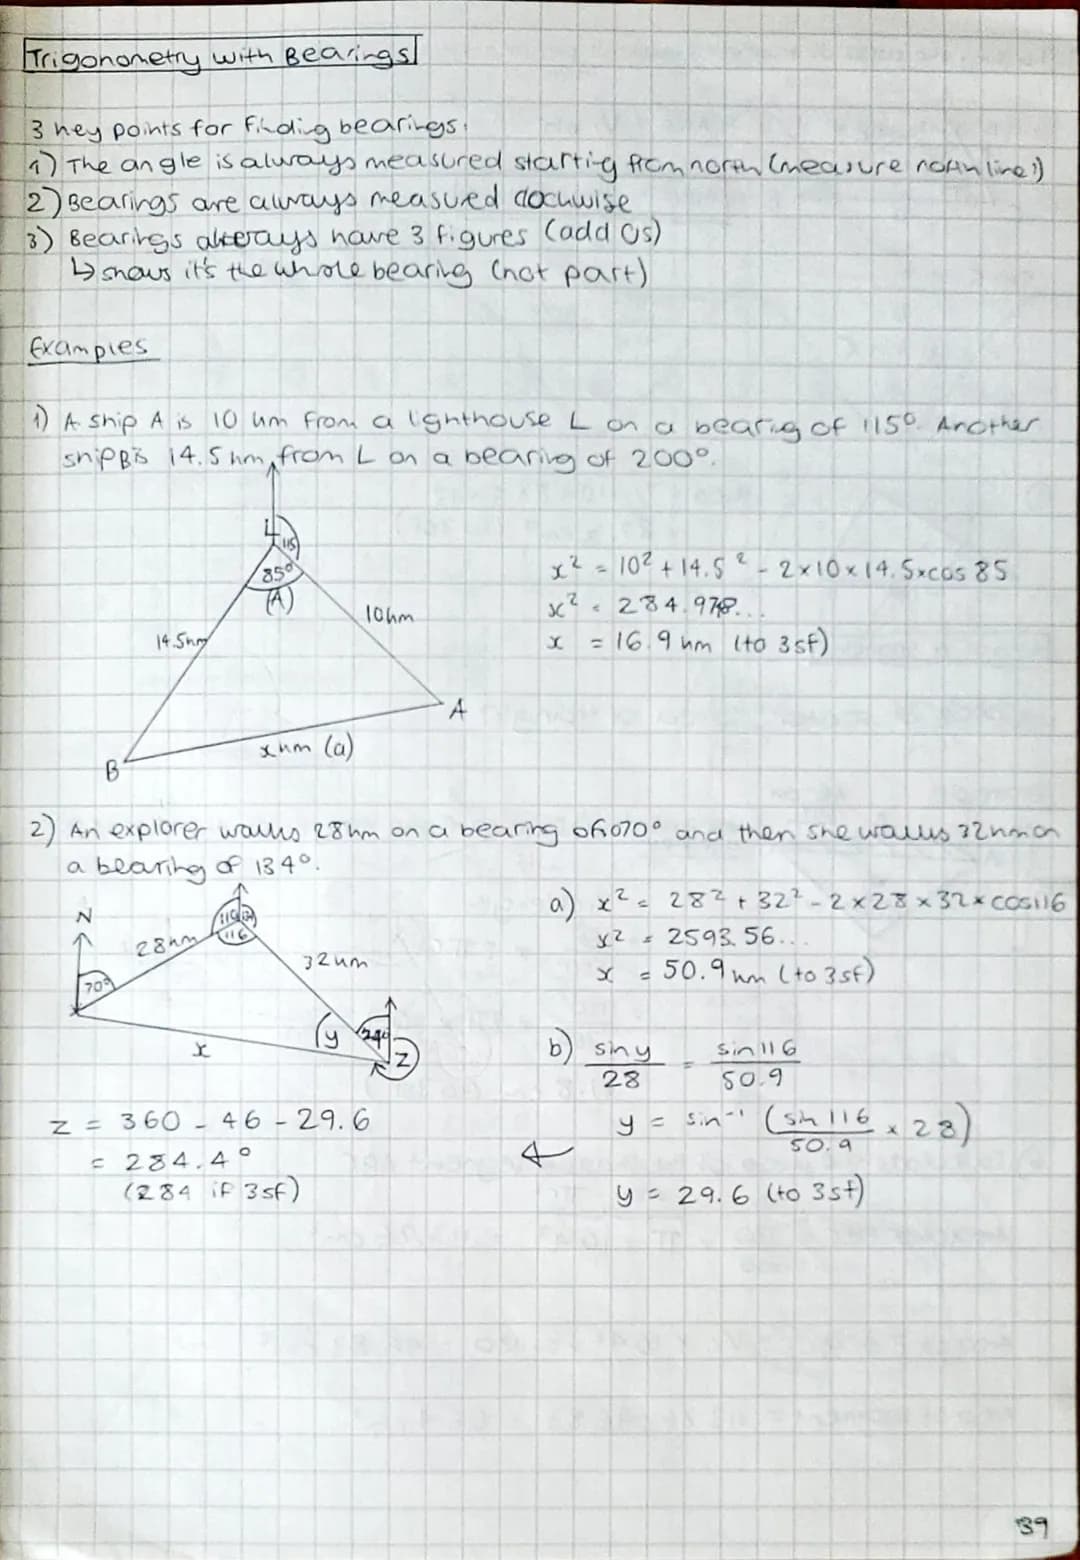 Trigonometry with Bearings
3 key points for finding bearings:
1) The angle is always measured starting from north (measure north line!)
2) Bearings are always measured clockwise
3) Bearings always have 3 figures (add 0s)
↳ shows it's the whole bearing (not part)
Examples
1) A ship A is 10 km from a lighthouse L on a bearing of 115°. Another
ship B is 14.5 km from L on a bearing of 200°.
L
115
85°
(A)
10km
14.5km
A
x km (a)
B
x² = 10² + 14.5² - 2×10×14.5×cos 85
x² = 284.978...
x = 16.9 km (to 3sf)
2) An explorer walks 28km on a bearing of 070° and then she walks 32km on
a bearing of 134°.
N
70°
28km
110 134
116
32km
x
y
Z
a) x² = 28² + 32² - 2×28×32×cos116
x² = 2593.56...
x = 50.9 km (to 3sf)
b) sin y / 28 = sin 116 / 50.9
y = sin⁻¹ (sin 116 / 50.9 × 28)
y = 29.6 (to 3sf)
z = 360 - 46 - 29.6
= 284.4°
(284 if 3sf)
39